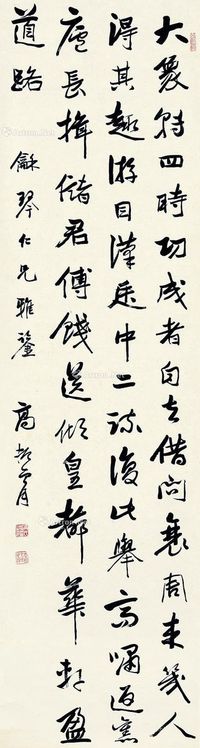 大象轉四時功成者自去借問衰周来幾人
得其趣游目漢廷中二疏復此舉高嘯返舊
廬長揖儲君傅餞送傾皇都華軒盈
道路
龢琴仁兄雅鑒 高振霄